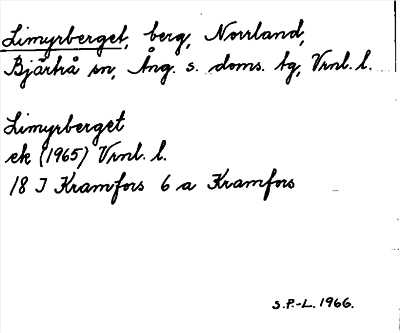 Limyrberget, berg, Norrland,
Bjärtrå sn, Ång. s. doms. tg, Vrnl. l.
Limyrberget
ek (1965) Vrnl. l.
18 J Kramfors 6 a Kramfors
S.P.-L. 1966.